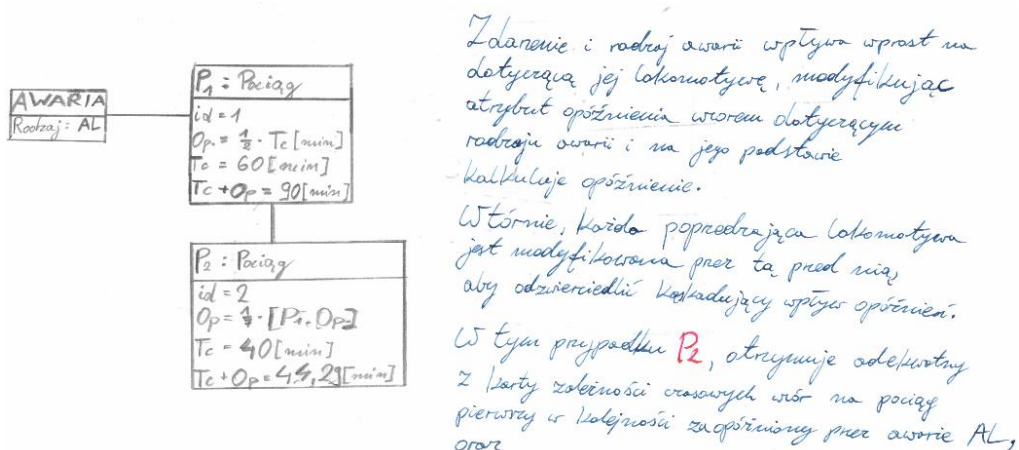 AWARIA
Rodzaj: AL
P1 : Pociąg
id = 1
Op. = 1/2 · Tc [min]
Tc = 60 [min]
Tc + Op = 90 [min]
P2 : Pociąg
id = 2
Op = 1/7 · [P1. Op.]
Tc = 40 [min]
Tc + Op = 44,29 [min]
Zdarzenie i rodzaj awarii wpływa wprost na
dotyczącą jej lokomotywę, modyfikując
atrybut opóźnienia wzorem dotyczącym
rodzaju awarii i na jego podstawie
kalkuluje opóźnienie.
Wtórnie, każda poprzedzająca lokomotywa
jest modyfikowana przez tą przed nią,
aby odzwierciedlić kaskadujący wpływ opóźnień.
W tym przypadku P2, otrzymuje adekwatny
z karty zależności czasowych wzór na pociąg
pierwszy w kolejności zaopóźniony przez awarie AL,
oraz